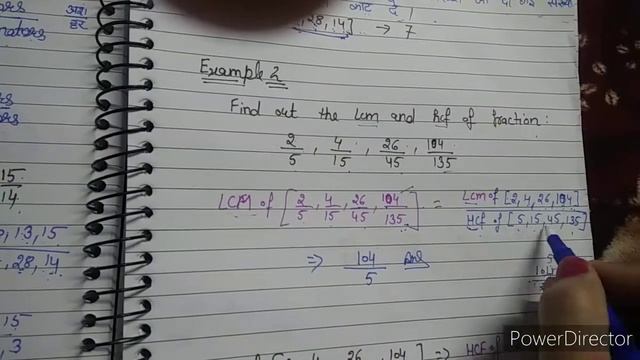 28, 14] → 7
Example 2
Find out the Lcm and Hcf of fraction:
2/5, 4/15, 26/45, 104/135
LCM of [2/5, 4/15, 26/45, 104/135] = Lcm of [2, 4, 26, 104] / Hcf of [5, 15, 45, 135]
⇒ 104/5 Ans
15
14
, 13, 15
, 28, 14
15
, 3
26, 104] ⇒ HCF of
PowerDirector